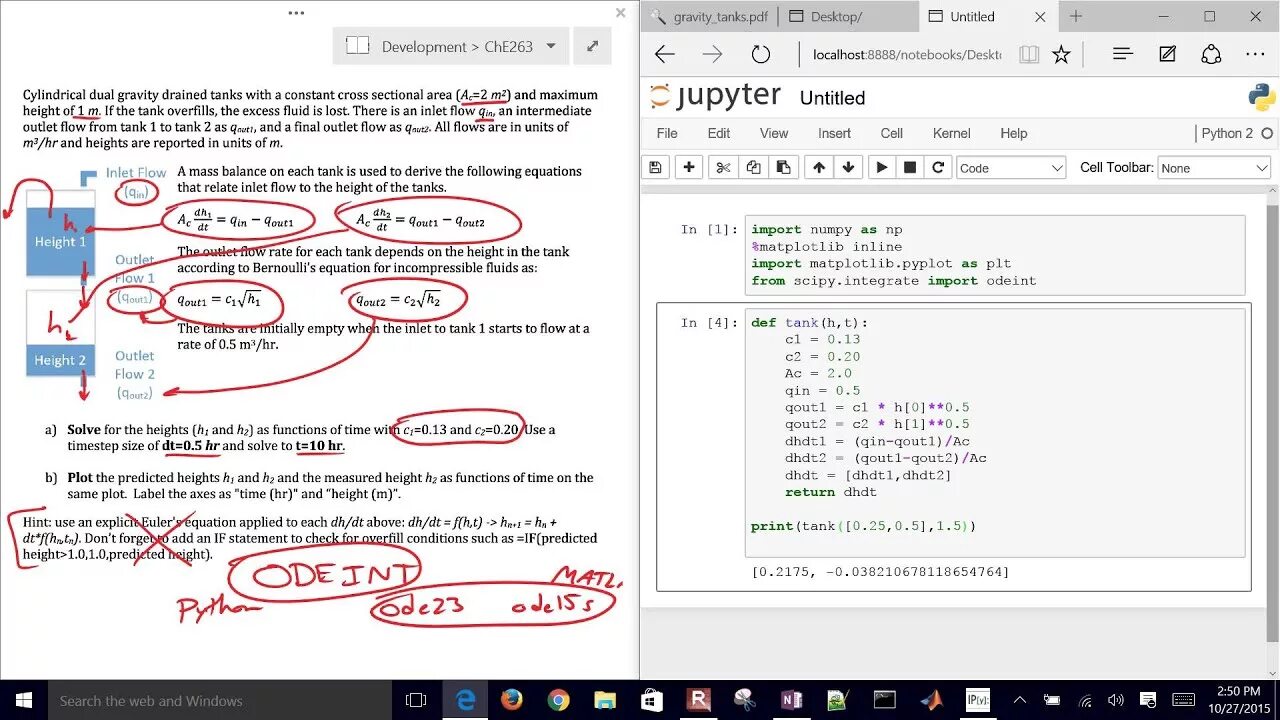 Development > ChE263
Cylindrical dual gravity drained tanks with a constant cross sectional area (Ac=2 m²) and maximum
height of 1 m. If the tank overfills, the excess fluid is lost. There is an inlet flow qin, an intermediate
outlet flow from tank 1 to tank 2 as qout1, and a final outlet flow as qout2. All flows are in units of
m³/hr and heights are reported in units of m.
Inlet Flow
(qin)
A mass balance on each tank is used to derive the following equations
that relate inlet flow to the height of the tanks.
h1
Height 1
Ac dh1/dt = qin − qout1
Ac dh2/dt = qout1 − qout2
The outlet flow rate for each tank depends on the height in the tank
according to Bernoulli's equation for incompressible fluids as:
Outlet
Flow 1
(qout1)
qout1 = c1√h1
qout2 = c2√h2
h2
Height 2
The tanks are initially empty when the inlet to tank 1 starts to flow at a
rate of 0.5 m³/hr.
Outlet
Flow 2
(qout2)
a) Solve for the heights (h1 and h2) as functions of time with c1=0.13 and c2=0.20. Use a
timestep size of dt=0.5 hr and solve to t=10 hr.
b) Plot the predicted heights h1 and h2 and the measured height h2 as functions of time on the
same plot. Label the axes as "time (hr)" and "height (m)".
Hint: use an explicit Euler's equation applied to each dh/dt above: dh/dt = f(h,t) -> hn+1 = hn +
dt*f(hn,tn). Don't forget to add an IF statement to check for overfill conditions such as =IF(predicted
height>1.0,1.0,predicted height).
ODEINT
MATL
Python
ode23 ode15s
gravity_tanks.pdf
Desktop/
Untitled
localhost:8888/notebooks/Deskto
jupyter Untitled
File Edit View Insert Cell Kernel Help
Python 2
Code
Cell Toolbar: None
In [1]: import numpy as np
%matplotlib inline
import matplotlib.pyplot as plt
from scipy.integrate import odeint
In [4]: def tank(h,t):
c1 = 0.13
c2 = 0.20
Ac = 2.0
qin = 0.5
qout1 = c1 * h[0]**0.5
qout2 = c2 * h[1]**0.5
dhdt1 = (qin-qout1)/Ac
dhdt2 = (qout1-qout2)/Ac
dhdt = [dhdt1,dhdt2]
return dhdt
print(tank([0.25,0.5],1.5))
[0.2175, -0.038210678118654764]
Search the web and Windows
R
N
IP[y]:
2:50 PM
10/27/2015